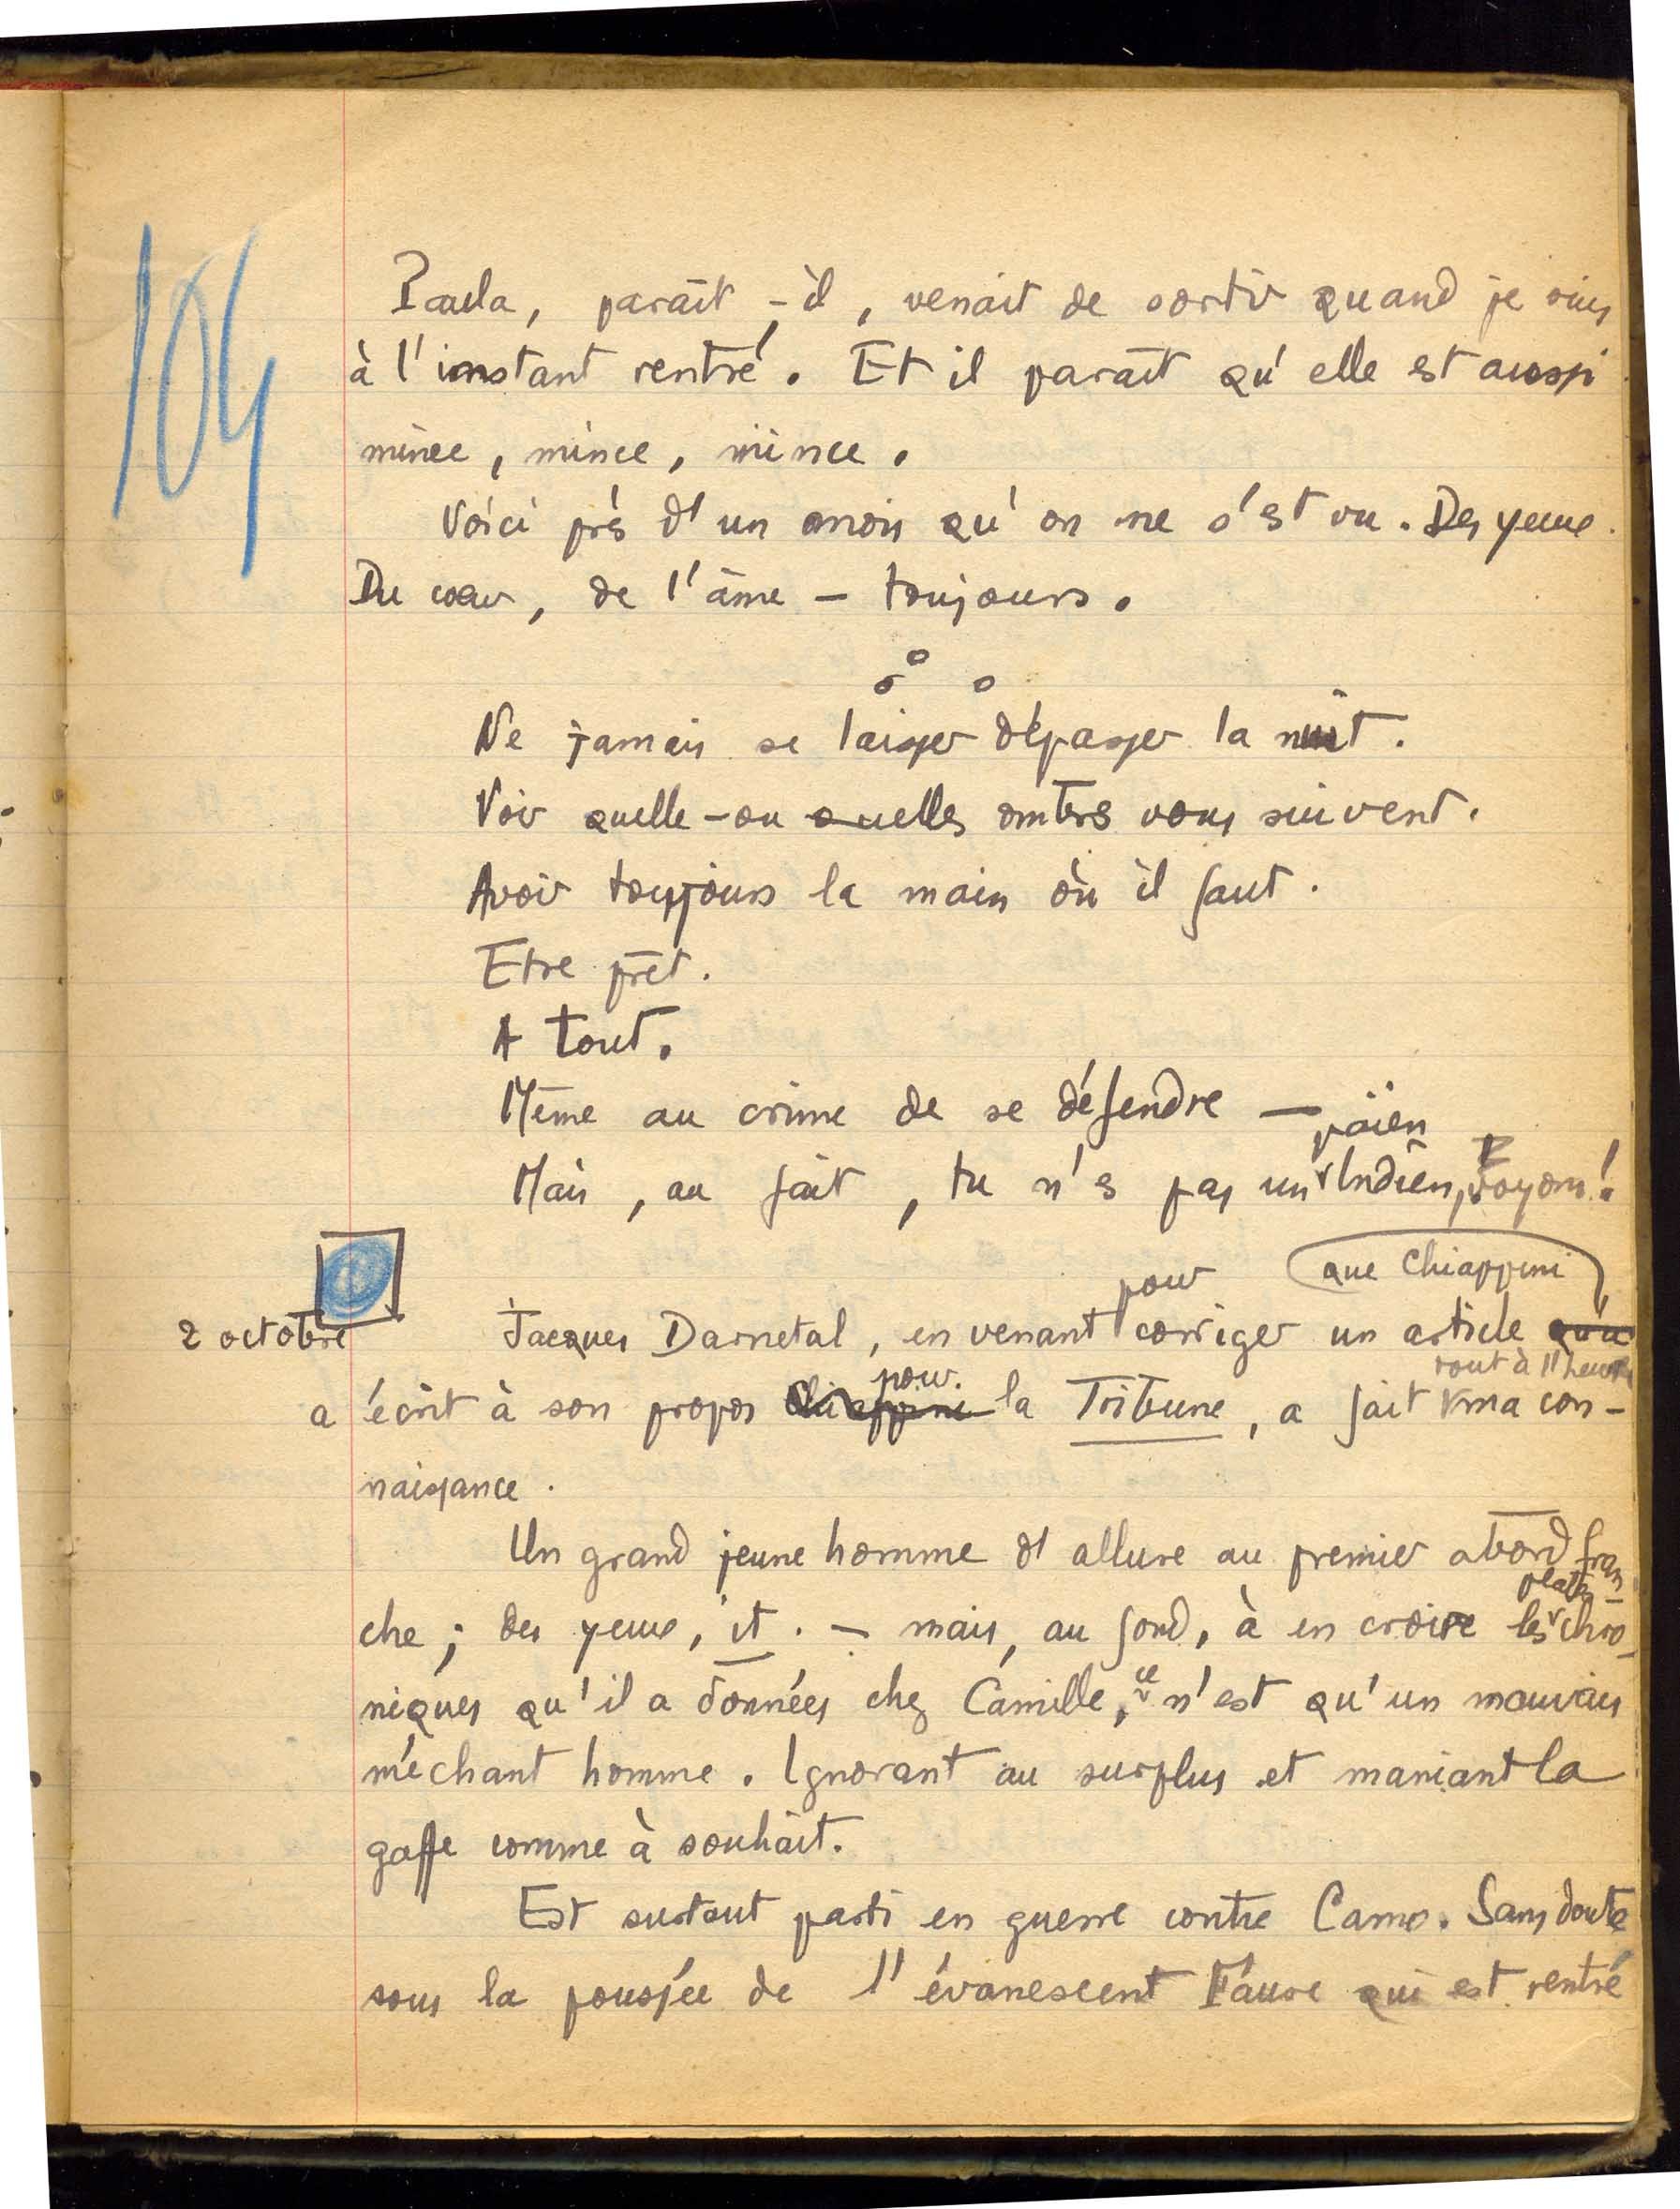 104
Paula, paraît-il, venait de sortir quand je suis
à l'instant rentré. Et il paraît qu'elle est aussi
mince, mince, mince.
Voici près d'un mois qu'on ne s'est vu. Des yeux.
Du cœur, de l'âme – toujours.
Ne jamais se laisser dépasser la nuit.
Voir quelle – ou quelles ombres vous suivent.
Avoir toujours la main où il faut.
Etre prêt.
A tout.
Même au crime de se défendre —
païen
Mais, au fait, tu n'es pas un Indien, voyons!
pour que Chiappini
2 octobre Jacques Darnetal, en venant corriger un article qu'a
pour tout à l'heure
a écrit à son propos Chiappini la Tribune, a fait ma con-
naissance.
Un grand jeune homme d'allure au premier abord fran-
che; des yeux, it. – mais, au fond, à en croire les chro-
niques qu'il a données chez Camille, ce n'est qu'un mauvais
méchant homme. Ignorant au surplus et maniant la
gaffe comme à souhait.
Est surtout parti en guerre contre Camo. Sans doute
sous la poussée de l'évanescent Faure qui est rentré